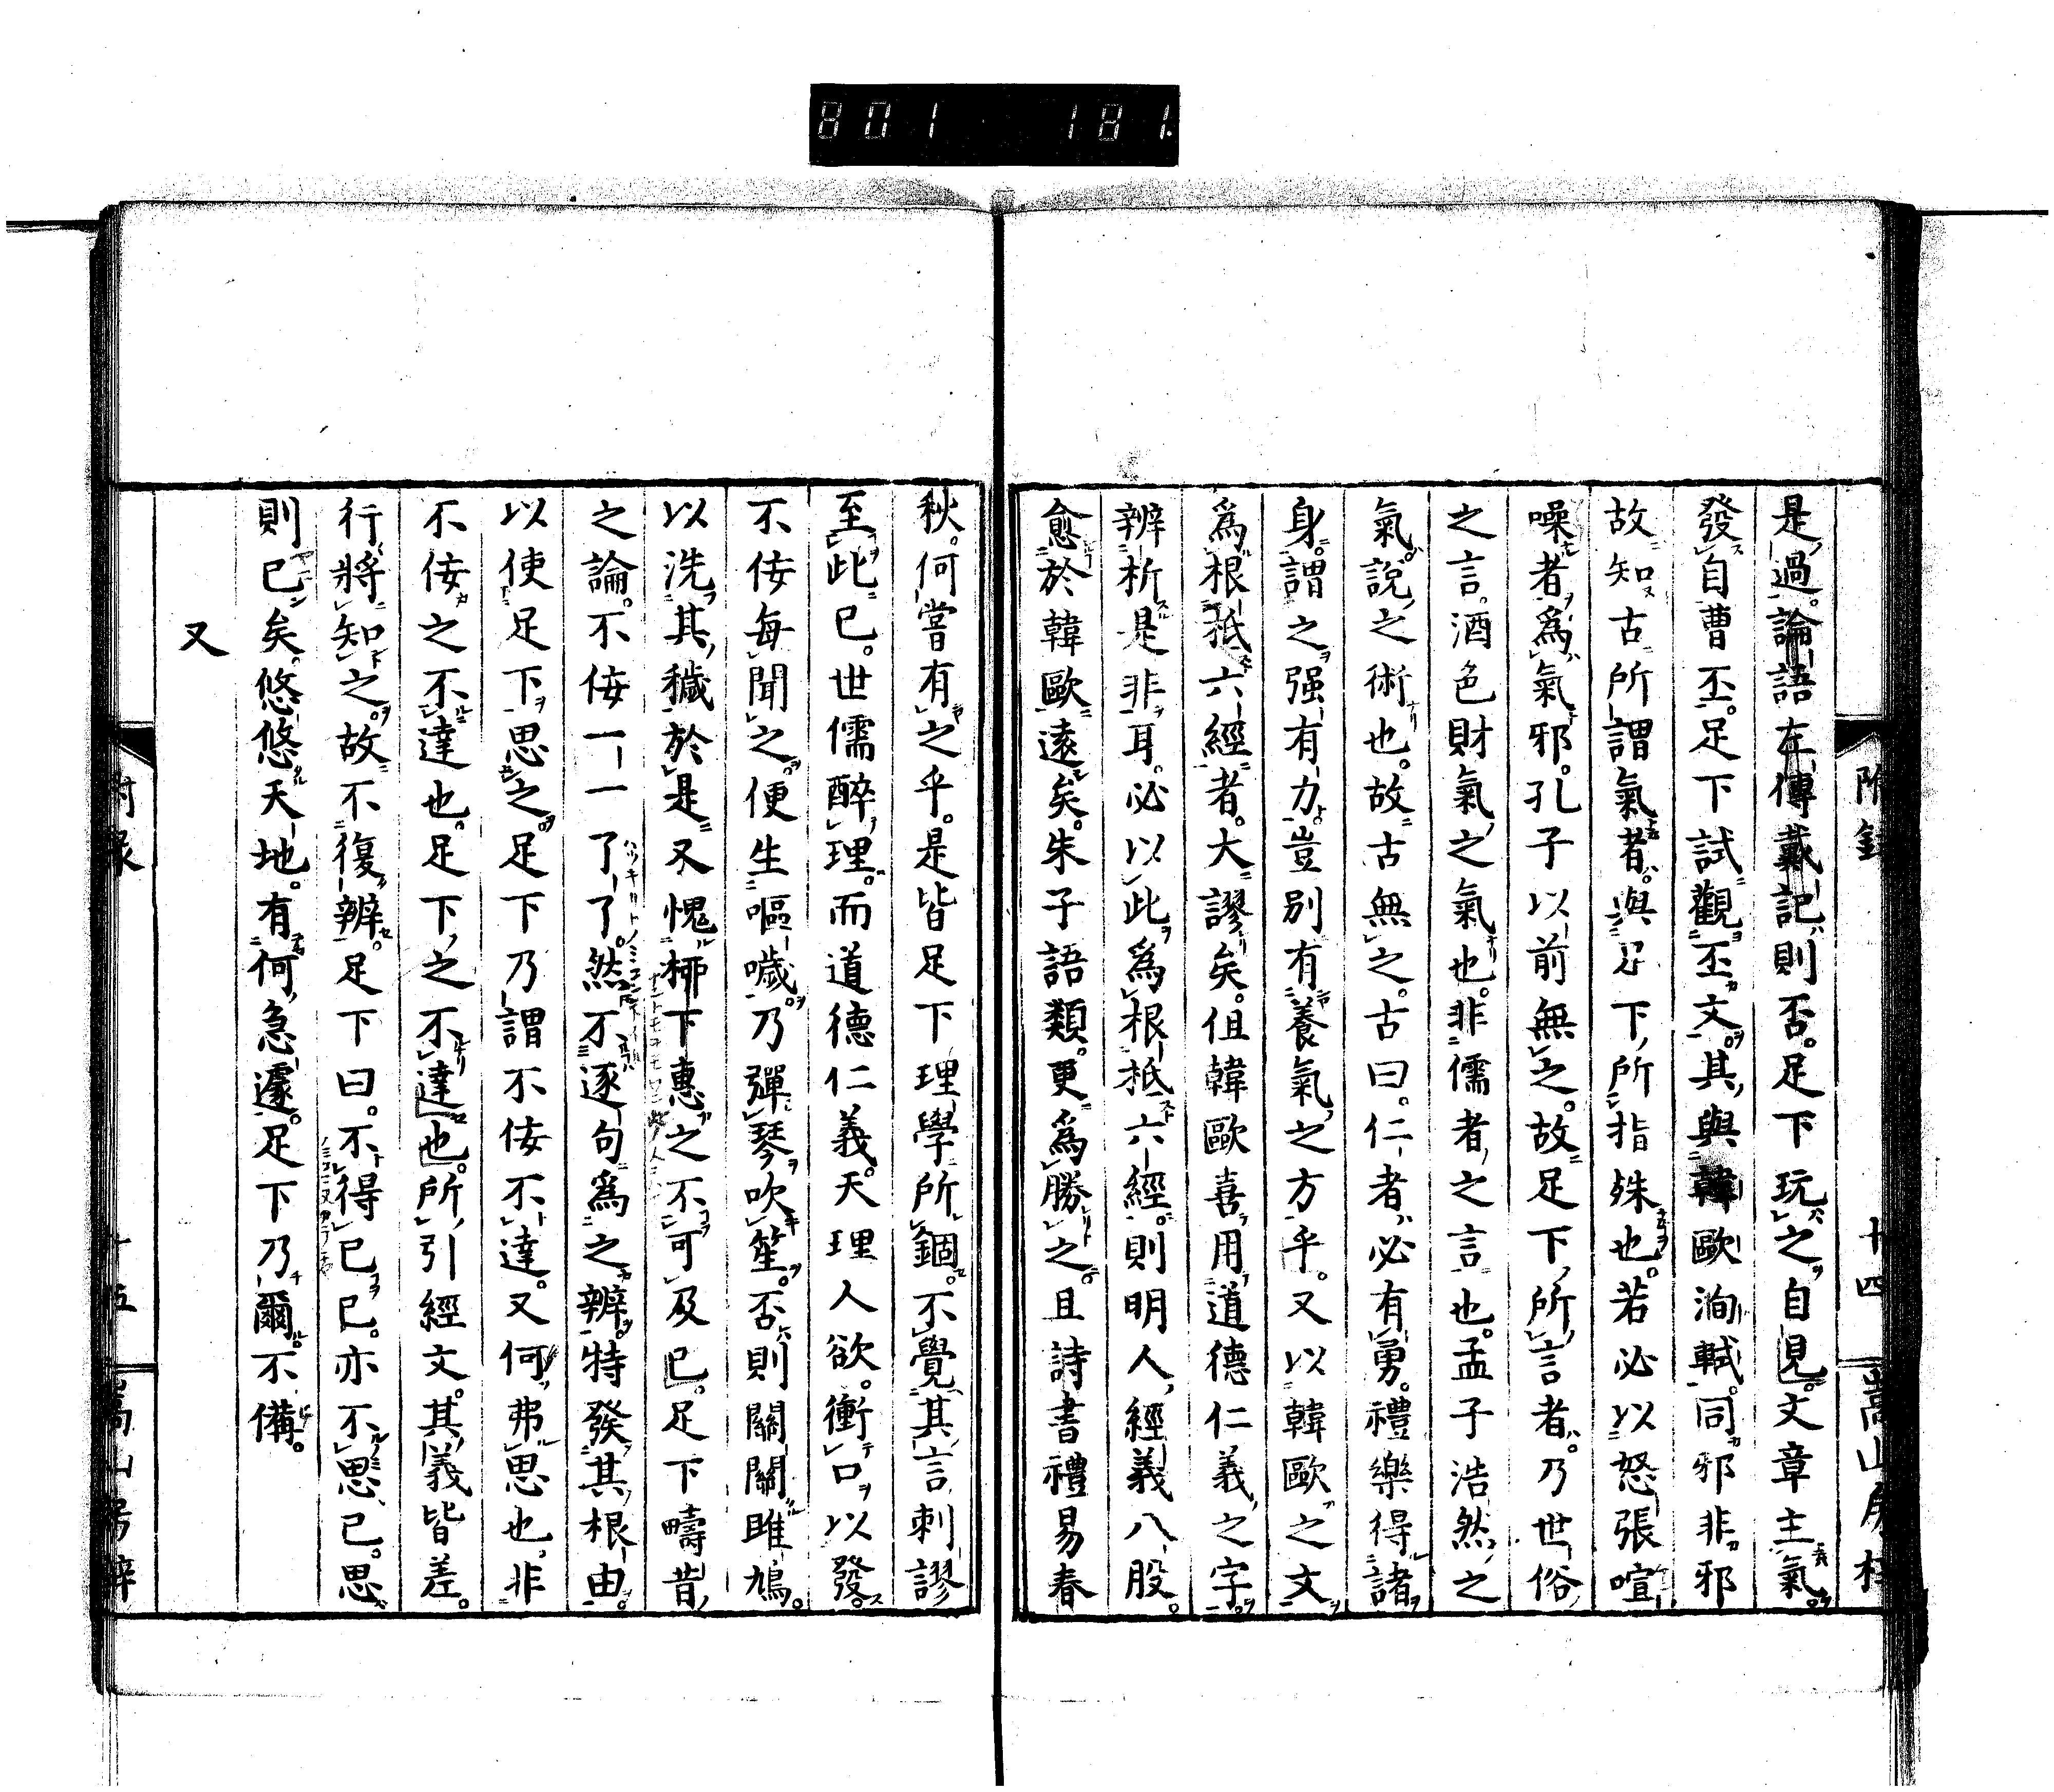 801 181.
附錄 十四 嵩山房梓
是過。論語左傳戴記則否。足下玩之自見。文章主氣。
發自曹丕。足下試觀丕文。其與韓歐洵軾。同邪非邪
故知古所謂氣者。與足下所指殊也。若必以怒張喧
噪者爲氣邪。孔子以前無之。故足下所言者。乃世俗
之言。酒色財氣之氣也。非儒者之言也。孟子浩然之
氣。說之術也。故古無之。古曰。仁者必有勇。禮樂得諸
身。謂之强有力。豈別有養氣之方乎。又以韓歐之文
爲根抵六經者。大謬矣。但韓歐喜用道德仁義之字。
辨析是非耳。必以此爲根抵六經。則明人經義八股。
愈於韓歐遠矣。朱子語類。更爲勝之。且詩書禮易春
秋。何嘗有之乎。是皆足下理學所錮。不覺其言刺謬
至此已。世儒醉理。而道德仁義。天理人欲。衝口以發。
不佞每聞之。便生嘔噦。乃彈琴吹笙。否則關關雎鳩。
以洗其穢。於是又愧柳下惠之不可及已。足下疇昔
之論。不佞一一了了。然不逐句爲之辨。特發其根由。
以使足下思之。足下乃謂不佞不達。又何弗思也。非
不佞之不達也。足下之不達也。所引經文。其義皆差。
行將知之。故不復辨。足下曰。不得已已。亦不思已。思
則已矣。悠悠天地。有何急遽。足下乃爾。不備。
又
附錄 十五 嵩山房梓